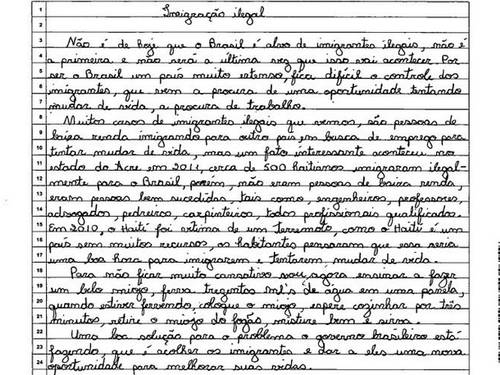 1 Imigração ilegal
2
3 Não é de hoje que o Brasil é alvo de imigrantes ilegais, não é
4 a primeira e não será a última vez que isso vai acontecer. Por
5 ser o Brasil um país muito extenso, fica difícil o controle dos
6 imigrantes, que vem a procura de uma oportunidade tentando
7 mudar de vida, a procura de trabalho.
8 Muitos casos de imigrantes ilegais que vemos, são pessoas de
9 baixa renda imigrando para outro país em busca de emprego para
10 tentar mudar de vida, mas um fato interessante aconteceu no
11 estado do Acre em 2011, cerca de 500 haitianos imigraram ilegal-
12 mente para o Brasil, porém, não eram pessoas de baixa renda,
13 eram pessoas bem sucedidas, tais como, engenheiros, professores,
14 advogados, pedreiros, carpinteiros, todos profissionais qualificados.
15 Em 2010, o Haiti foi vítima de um terremoto, como o Haiti é um
16 país sem muitos recursos, os habitantes pensaram que essa seria
17 uma boa hora para imigrarem e tentarem, mudar de vida.
18 Para não ficar muito cansativo vou, agora ensinar a fazer
19 um belo miojo, ferva trezentos ml's de água em uma panela,
20 quando estiver fervendo, coloque o miojo, espere cozinhar por três
21 minutos, retire o miojo do fogão, misture bem e sirva.
22 Uma boa solução para o problema o governo brasileiro está
23 fazendo, que é acolher os imigrantes e dar a eles uma nova
24 oportunidade para melhorar suas vidas.